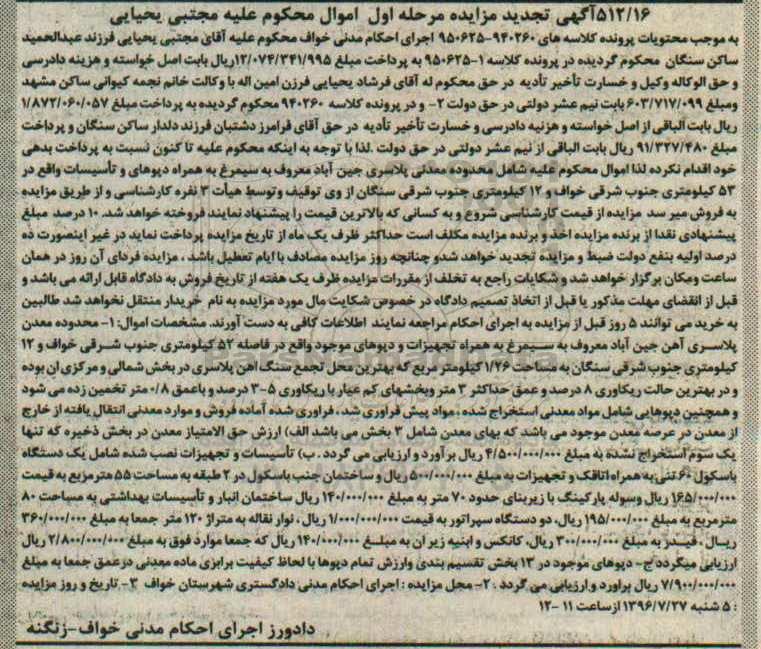 ۵۱۲/۱۶آگهی تجدید مزایده مرحله اول اموال محکوم علیه مجتبی یحیایی
به موجب محتویات پرونده کلاسه های ۹۴۰۲۶۰-۹۵۰۶۲۵ اجرای احکام مدنی خواف محکوم علیه آقای مجتبی یحیایی فرزند عبدالحمید
ساکن سنگان محکوم گردیده در پرونده کلاسه ۱-۹۵۰۶۲۵ به پرداخت مبلغ ۱۲/۰۷۴/۳۴۱/۹۹۵ریال بابت اصل خواسته و هزینه دادرسی
و حق الوکاله وکیل و خسارت تأخیر تأدیه در حق محکوم له آقای فرشاد یحیایی فرزن امین اله با وکالت خانم نجمه کیوانی ساکن مشهد
ومبلغ ۶۰۳/۷۱۷/۰۹۹ بابت نیم عشر دولتی در حق دولت ۲- و در پرونده کلاسه ۹۴۰۲۶۰ محکوم گردیده به پرداخت مبلغ ۱/۸۷۲/۰۶۰/۰۵۷
ریال بابت الباقی از اصل خواسته و هزنیه دادرسی و خسارت تأخیر تأدیه در حق آقای فرامرز دشتبان فرزند دلدار ساکن سنگان و پرداخت
مبلغ ۹۱/۳۲۷/۴۸۰ ریال بابت الباقی از نیم عشر دولتی در حق دولت .لذا با توجه به اینکه محکوم علیه تا کنون نسبت به پرداخت بدهی
خود اقدام نکرده لذا اموال محکوم علیه شامل محدوده معدنی پلاسری جین آباد معروف به سیمرغ به همراه دپوهای و تأسیسات واقع در
۵۳ کیلومتری جنوب شرقی خواف و ۱۲ کیلومتری جنوب شرقی سنگان از وی توقیف وتوسط هیأت ۳ نفره کارشناسی و از طریق مزایده
به فروش میر سد مزایده از قیمت کارشناسی شروع و به کسانی که بالاترین قیمت را پیشنهاد نمایند فروخته خواهد شد. ۱۰ درصد مبلغ
پیشنهادی نقدا از برنده مزایده اخذ و برنده مزایده مکلف است حداکثر ظرف یک ماه از تاریخ مزایده پرداخت نماید در غیر اینصورت ده
درصد اولیه بنفع دولت ضبط و مزایده تجدید خواهد شدو چنانچه روز مزایده مصادف با ایام تعطیل باشد ، مزایده فردای آن روز در همان
ساعت ومکان برگزار خواهد شد و شکایات راجع به تخلف از مقررات مزایده ظرف یک هفته از تاریخ فروش به دادگاه قابل ارائه می باشد و
قبل از انقضای مهلت مذکور یا قبل از اتخاذ تصمیم دادگاه در خصوص شکایت مال مورد مزایده به نام خریدار منتقل نخواهد شد طالبین
به خرید می توانند ۵ روز قبل از مزایده به اجرای احکام مراجعه نمایند اطلاعات کافی به دست آورند. مشخصات اموال: ۱- محدوده معدن
پلاسری آهن جین آباد معروف به سیمرغ به همراه تجهیزات و دپوهای موجود واقع در فاصله ۵۲ کیلومتری جنوب شرقی خواف و ۱۲
کیلومتری جنوب شرقی سنگان به مساحت ۱/۲۶ کیلومتر مربع که بهترین محل تجمع سنگ اهن پلاسری در بخش شمالی و مرکزی ان بوده
و در بهترین حالت ریکاوری ۸ درصد و عمق حداکثر ۳ متر وبخشهای کم عیار با ریکاوری ۵-۳ درصد و باعمق ۰/۸ متر تخمین زده می شود
و همچنین دپوهایی شامل مواد معدنی استخراج شده ، مواد پیش فرآوری شد ، فراوری شده آماده فروش و موارد معدنی انتقال یافته از خارج
از معدن در عرصه معدن موجود می باشد که بهای معدن شامل ۳ بخش می باشد الف) ارزش حق الامتیاز معدن در بخش ذخیره که تنها
یک سوم استخراج نشده به مبلغ ۴/۵۰۰/۰۰۰/۰۰۰ ریال برآورد و ارزیابی می گردد . ب) تأسیسات و تجهیزات نصب شده شامل یک دستگاه
باسکول ۶۰ تنی به همراه اتاقک و تجهیزات به مبلغ ۵۰۰/۰۰۰/۰۰۰ ریال و ساختمان جنب باسکول در ۲ طبقه به مساحت ۵۵ متر مربع به قیمت
۱۶۵/۰۰۰/۰۰۰ ریال وسوله پارکینگ با زیربنای حدود ۷۰ متر به مبلغ ۱۴۰/۰۰۰/۰۰۰ ریال ساختمان انبار و تأسیسات بهداشتی به مساحت ۸۰
مترمربع به مبلغ ۱۹۵/۰۰۰/۰۰۰ ریال، دو دستگاه سپراتور به قیمت ۱/۰۰۰/۰۰۰/۰۰۰ ریال ، نوار نقاله به متراژ ۱۲۰ متر جمعا به مبلغ ۳۶۰/۰۰۰/۰۰۰
ریـال . فیـدر به مبلغ ۳۰۰/۰۰۰/۰۰۰ ریال، کانکس و ابنیه زیر ان به مبلـغ ۱۴۰/۰۰۰/۰۰۰ریال که جمعا موارد فوق به مبلغ ۲/۸۰۰/۰۰۰/۰۰۰ ریال
ارزیابی میگردد ج- دپوهای موجود در ۱۳ بخش تقسیم بندی وارزش تمام دپوها با لحاظ کیفیت برابری ماده معدنی درعمق جمعا به مبلغ
۷/۹۰۰/۰۰۰/۰۰۰ ریال براورد و ارزیابی می گردد . ۲- محل مزایده : اجرای احکام مدنی دادگستری شهرستان خواف ۳- تاریخ و روز مزایده
: ۵ شنبه ۱۳۹۶/۷/۲۷ از ساعت ۱۱ -۱۲
دادورز اجرای احکام مدنی خواف-زنگنه